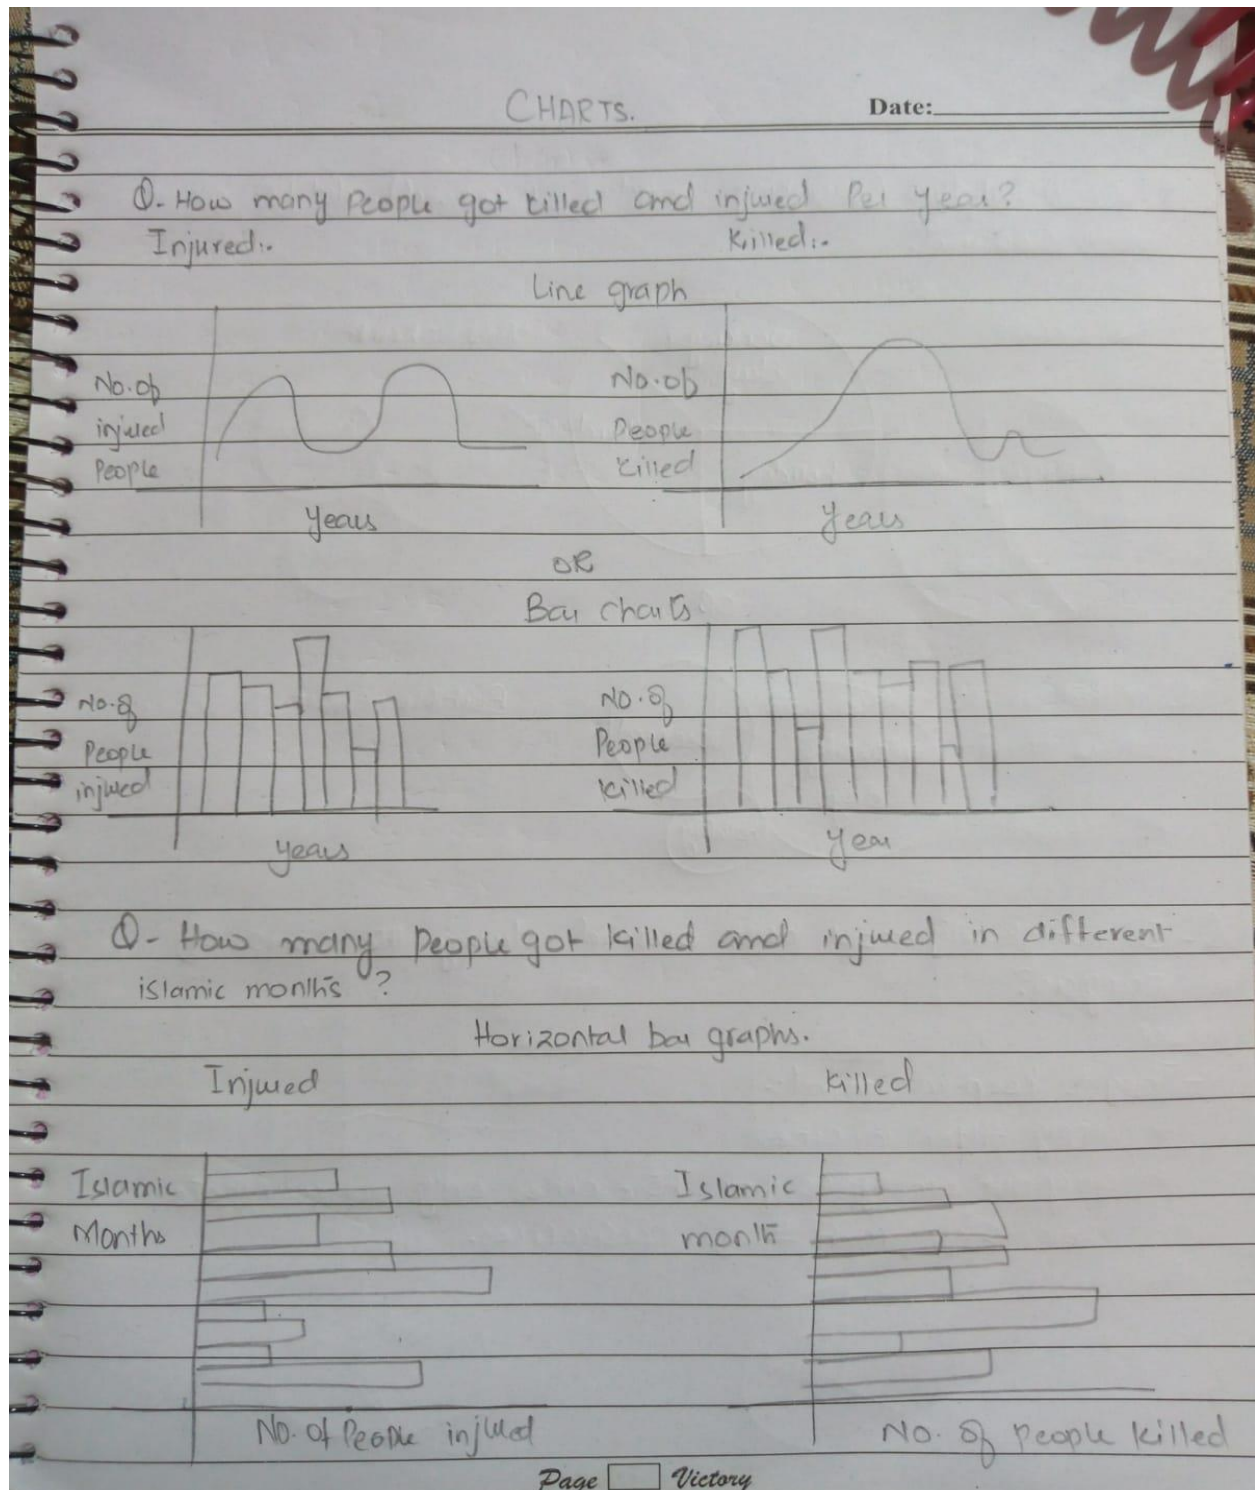 CHARTS.
Date:
Q. How many people got killed and injured per year?
Injured:.
Killed:.
Line graph
No. of
injured
People
Years
No. of
People
killed
Years
OR
Bar charts.
No. of
People
injured
Years
No. of
People
killed
Year
Q - How many people got killed and injured in different
islamic months?
Horizontal bar graphs.
Injured
Killed
Islamic
Months
No. of People injured
Islamic
month
No. of people killed
Page Victory